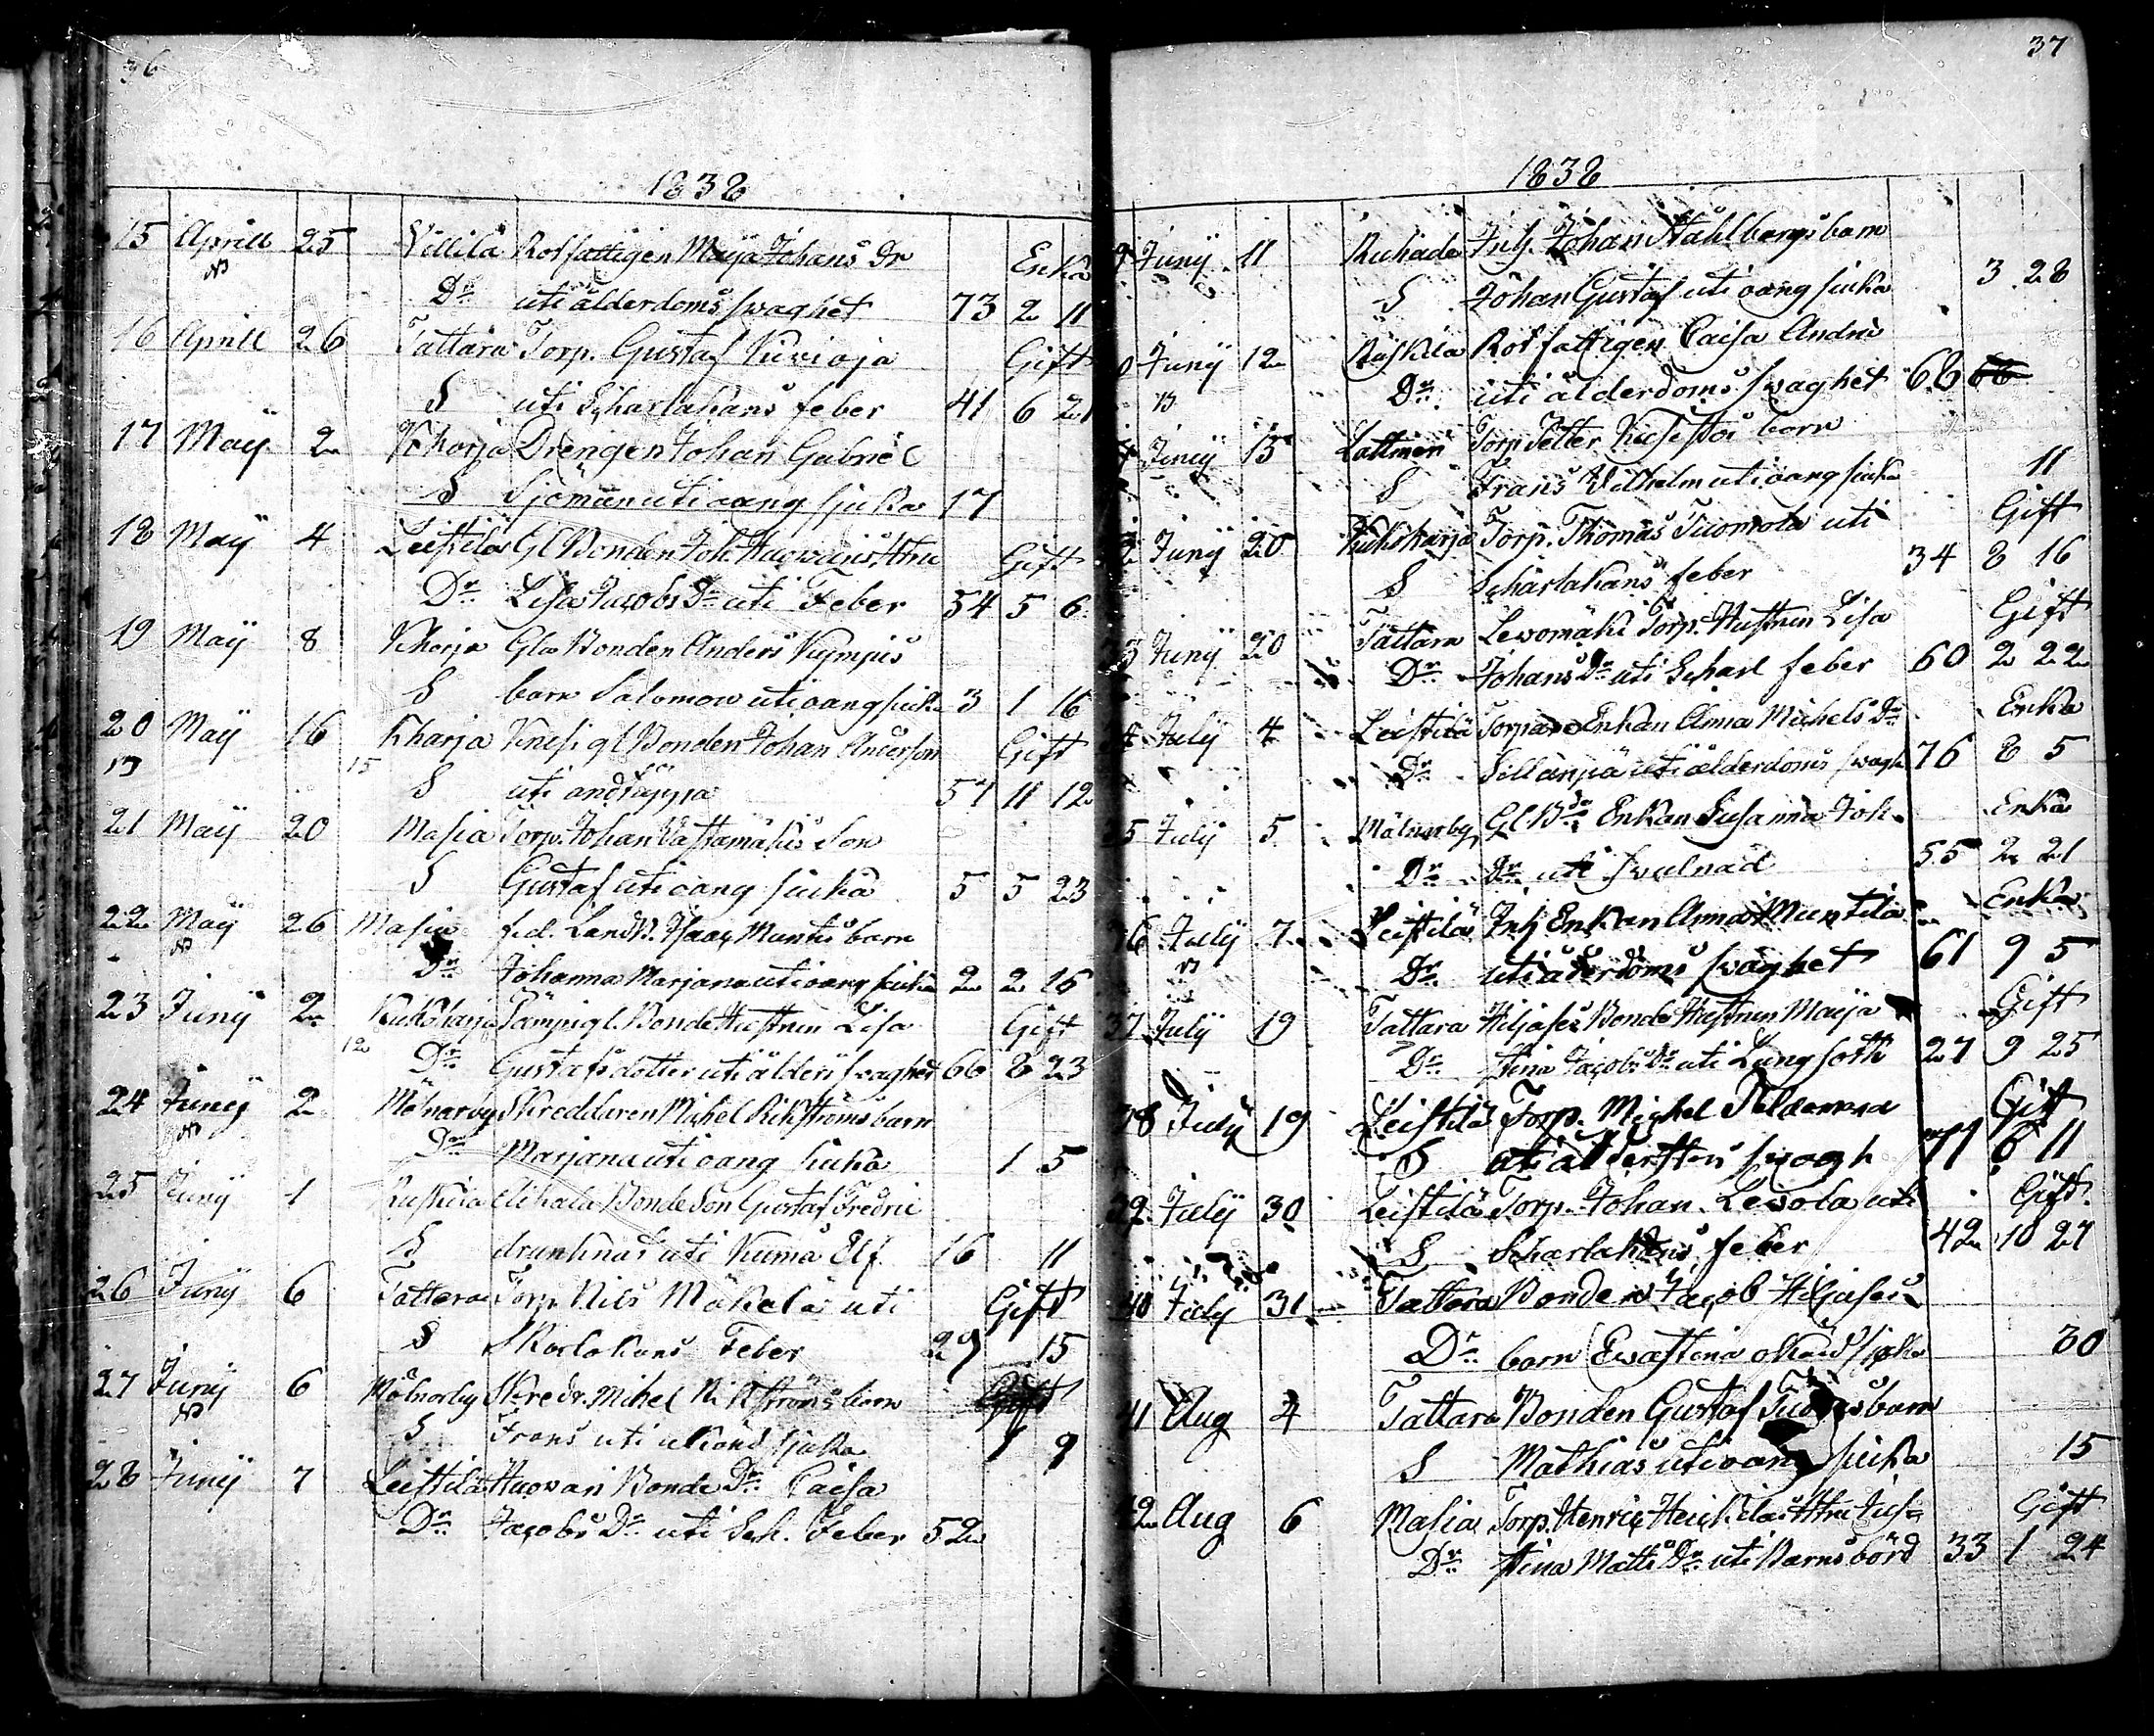 36
1838
15 Aprill 25 Villila Rotfattigen Maja Johans Dr Enka
Dr uti ålderdoms swaghet 73 2 11
16 Aprill 26 Tattara Torp. Gustaf Kuvioja Gift
S uti Scharlakans feber 41 6 21
17 Maÿ 2 Kharja Drengen Johan Gabriel
S Sjöman uti oang sjuka 17
18 Maÿ 4 Leistilä Gl Bonden Joh. Huovaris Hru Gift
Dr Lisa Jacobs Dr uti Feber 54 5 6
19 Maÿ 8 Kharja Gla Bonden Anders Kympis
S barn Salomon uti oang siuka 3 1 16
20 Maÿ 16 Kharja Knisi gl Bonden Johan Anderson Gift
15 S uti andtäppa 57 11 12
21 Maÿ 20 Masia Torp. Johan Vastamäkis Son
S Gustaf uti oang siuka 5 5 23
22 Maÿ 26 Masia f.d. Landb. Isaac Muntis barn
Dr Johanna Marjana uti oang siuka 2 2 16
23 Junÿ 2 Kukoharja Pämpi gl. Bonde Hustrun Lisa Gift
12 Dr Gustafsdotter uti ålders swaghet 66 8 23
24 Junÿ 2 Mölnarby Skreddaren Michel Rikströms barn
Dr Marjana uti oang siuka 1 5
25 Junÿ 1 Ruskila Alihala Bonde Son Gustaf Fredric
S drunknad uti Kumå Elf 16 11
26 Junÿ 6 Tattara Torp. Nils Mäkelä uti Gift
S Skarlakans Feber 29 15
27 Junÿ 6 Mölnarby Skredr. Mihel Rikströms barn Gift
S Frans uti okänd sjuka 1 9
28 Junÿ 7 Leistilä Huovari Bonde Dr Caisa
Dr Jacobs Dr uti Sch. Feber 52
37
1838
Junÿ 11 Inh. Johan Stahlbergs barn
S Johan Gustaf uti oang siuka 3 28
Junÿ 12 Ruskila Rotfattigen Caisa Andre
Dr uti ålderdoms swaghet 68
Junÿ 13 Lattmeri Torp Petter barn
S Frans Vilhelm uti oang siuka 11
Junÿ 20 Kukoharja Torp. Thomas Tuomola uti Gift
S Scharlakans feber 34 8 16
Junÿ 20 Tattara Levomäki Torp. Hustrun Lisa Gift
Dr Johans Dr uti Scharl feber 60 2 22
Julÿ 4 Leistilä Torpare Enkan Anna Michels Dr Enka
Dr Sillanpä uti ålderdoms swagh 76 8 5
35 Julÿ 5 Mölnarby Gl Bde Enkan Susanna Joh Enka
Dr Dr uti swulnad 55 2 21
36 Julÿ 7 Leistilä Inh Enkan Anna Muntila Enka
Dr uti ålderdoms swaghet 61 9 5
37 Julÿ 19 Tattara Hiljases Bonde Hustrun Maja Gift
Dr Stina Jacobs Dr uti Lungsoth 27 9 25
38 Julÿ 19 Leistilä Torp. Michel Gift
S uti swagh 71 8 11
39 Julÿ 30 Leistilä Torp. Johan Levola uti Gift
S Scharlakans feber 42 10 27
40 Julÿ 31 Tattara Bonden Jacob Hiljases
Dr barn Eva Stina okänd sjuka 30
41 Aug 4 Tattara Bonden Gustaf barn
S Mathias uti oang siuka 15
42 Aug 6 Masia Torp. Henric Heickilas Hru Gift
Dr Stina Matts Dr uti Barnsbörd 33 1 24